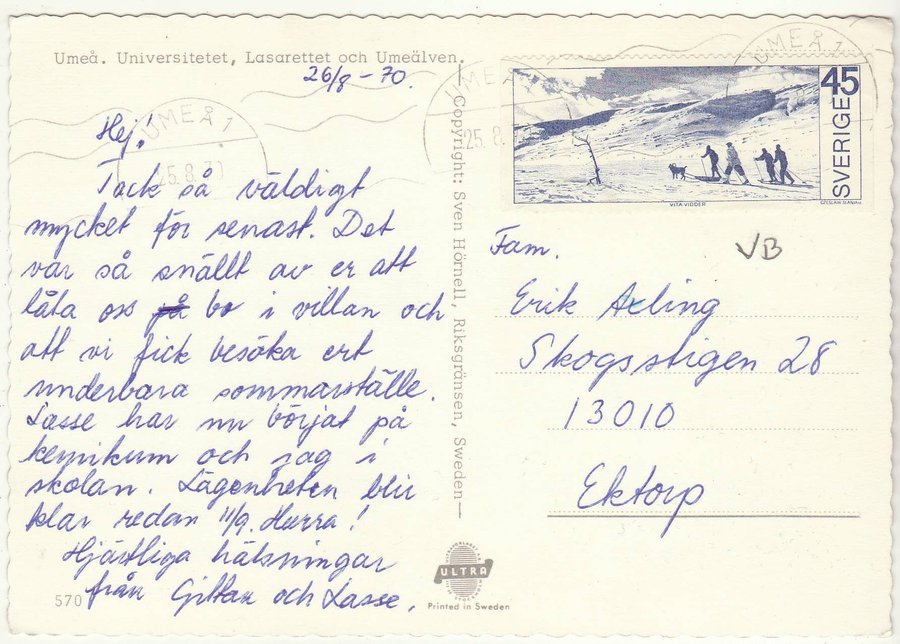 Umeå. Universitetet, Lasarettet och Umeälven.
26/8 - 70.
Hej!
Tack så väldigt
mycket för senast. Det
var så snällt av er att
låta oss bo i villan och
att vi fick besöka ert
underbara sommarställe.
Lasse har nu börjat på
kemikum och jag i
skolan. Lägenheten blir
klar redan 11/9. Hurra!
Hjärtliga hälsningar
från Gittan och Lasse.
570
Copyright: Sven Hörnell, Riksgränsen, Sweden
UMEÅ 1
25.8.70
UMEÅ
25.8.
UMEÅ 1
45
SVERIGE
VITA VIDDER
CZESLAW SLANIA
VB
Fam.
Erik Axling
Skogsstigen 28
13010
Ektorp
ULTRA
Printed in Sweden